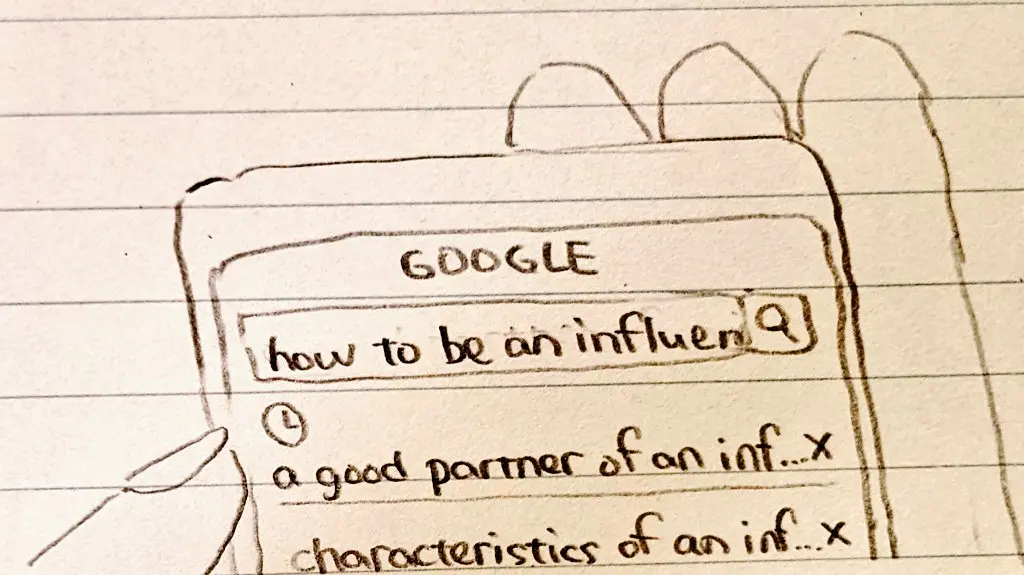 GOOGLE
how to be an influen
a good partner of an inf...x
characteristics of an inf...x